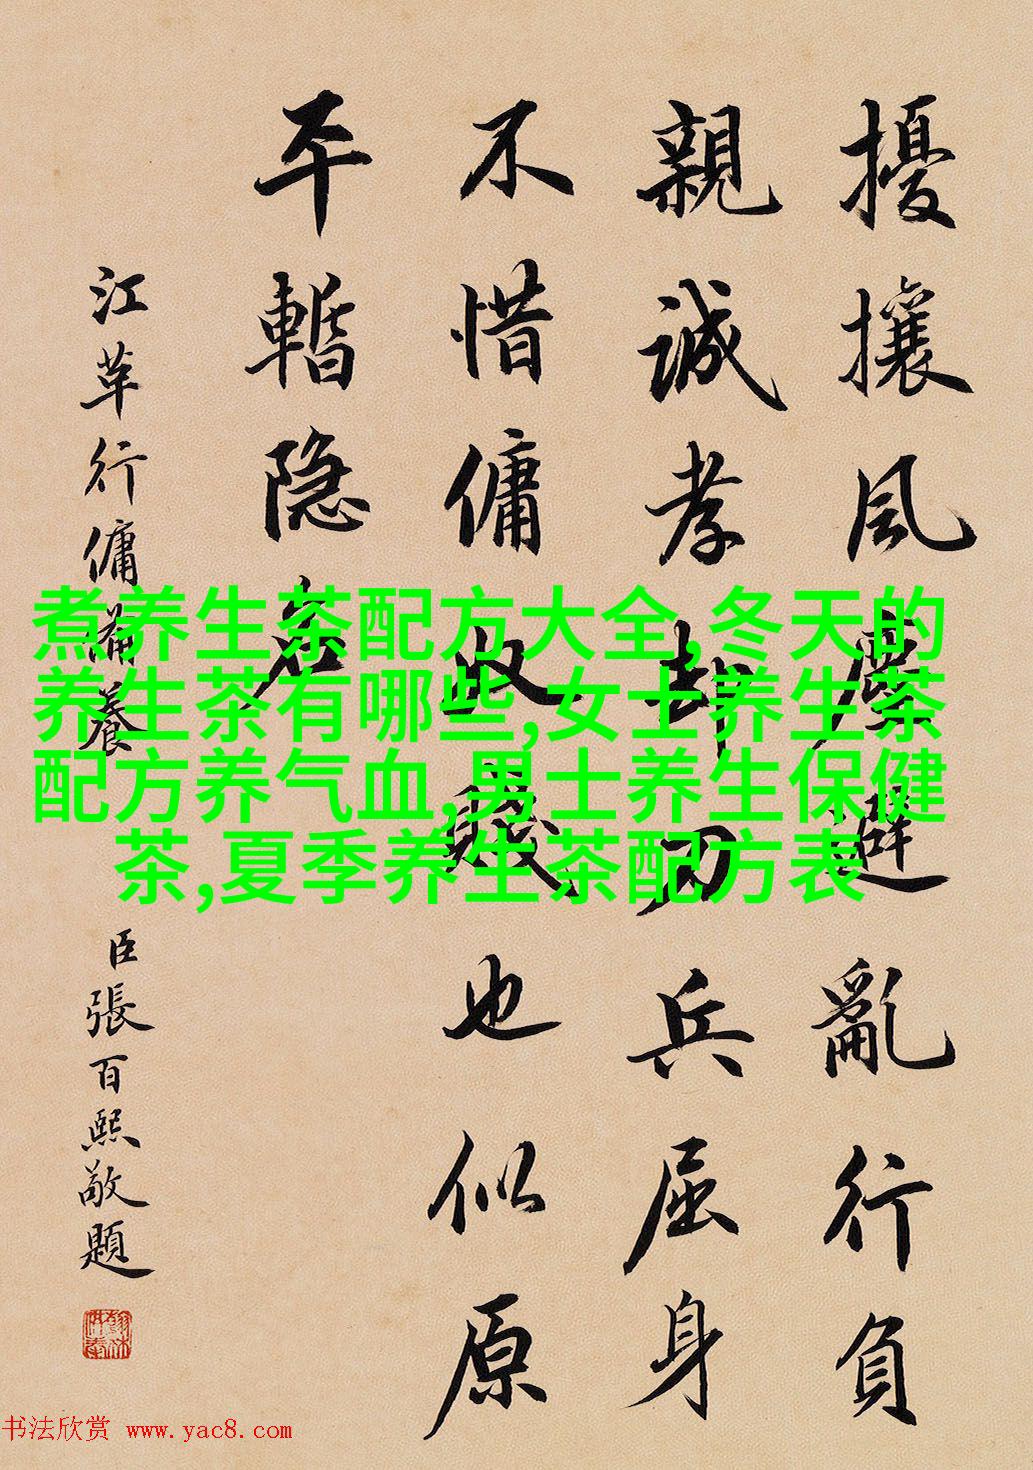 擾攘風塵避亂行負
親誠孝却刃兵屈身
不惜傭賤也似原
平暫隐名
江革行傭養
臣張百熙敬題
煮养生茶配方大全,冬天的
养生茶有哪些,女士养生茶
配方养气血,男士养生保健
茶,夏季养生茶配方表
书法欣赏 www.yac8.com